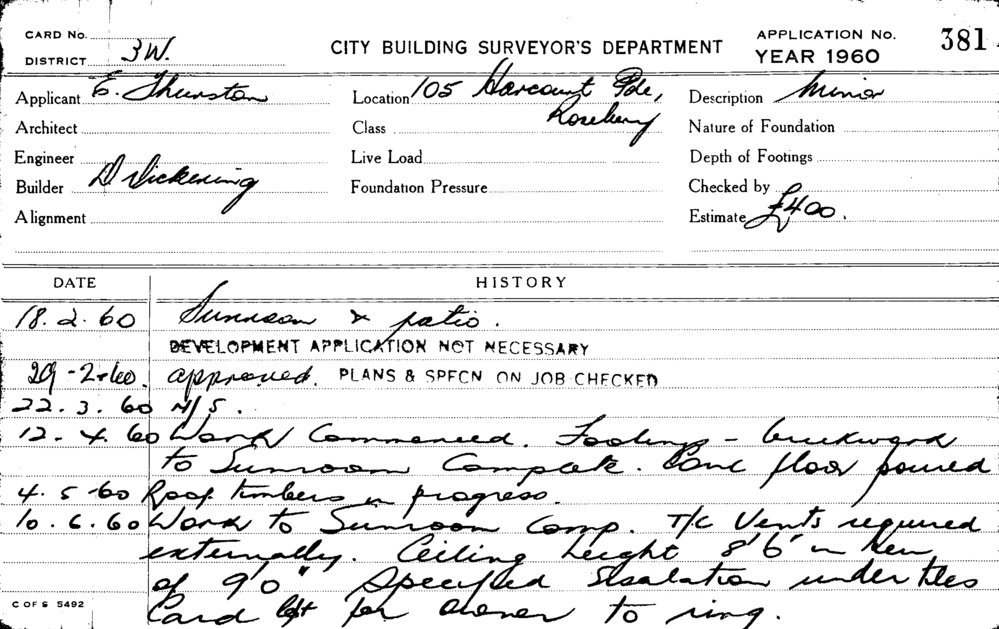 CARD No.
DISTRICT 3W.
CITY BUILDING SURVEYOR'S DEPARTMENT
APPLICATION No. 381
YEAR 1960
Applicant E. Thurston
Location 105 Harcourt Pde,
Rosebery
Description Minor
Architect
Class
Nature of Foundation
Engineer
Live Load
Depth of Footings
Builder D Vickering
Foundation Pressure
Checked by
Alignment
Estimate £400.
DATE HISTORY
18. 2. 60 Sunroom & patio.
DEVELOPMENT APPLICATION NOT NECESSARY
29-2-60. approved. PLANS & SPFCN ON JOB CHECKED
22. 3. 60 N/S.
12. 4. 60 Work Commenced. Footings - brickwork
to Sunroom Complete. Conc floor poured
4. 5 60 Roof timbers in progress.
10. 6. 60 Work to Sunroom Comp. T/C Vents required
externally. Ceiling height 8'6" in lieu
of 9'0" Specified Sisalation under tiles
Card left for owner to ring.
C OF S 5492